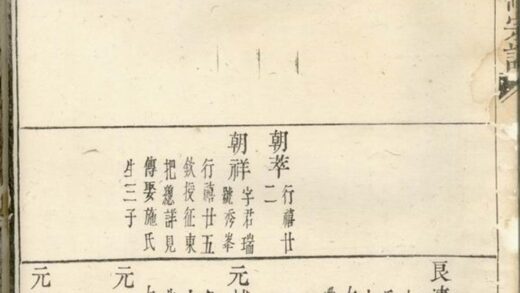 宗譜
朝萃行禧廿
二
朝祥字君瑞
號秀峯
行禧廿五
欽授征東
把總詳見
傳娶施氏
生三子
元
元
元